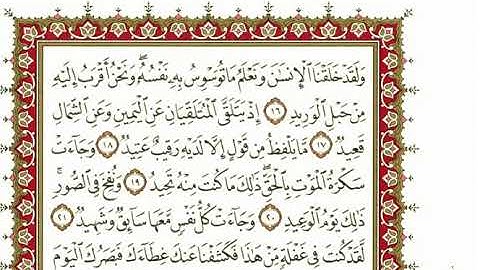 وَلَقَدْ خَلَقْنَا ٱلْإِنسَٰنَ وَنَعْلَمُ مَا تُوَسْوِسُ بِهِۦ نَفْسُهُۥ ۖ وَنَحْنُ أَقْرَبُ إِلَيْهِ
مِنْ حَبْلِ ٱلْوَرِيدِ ١٦ إِذْ يَتَلَقَّى ٱلْمُتَلَقِّيَانِ عَنِ ٱلْيَمِينِ وَعَنِ ٱلشِّمَالِ
قَعِيدٌ ١٧ مَّا يَلْفِظُ مِن قَوْلٍ إِلَّا لَدَيْهِ رَقِيبٌ عَتِيدٌ ١٨ وَجَآءَتْ
سَكْرَةُ ٱلْمَوْتِ بِٱلْحَقِّ ۖ ذَٰلِكَ مَا كُنتَ مِنْهُ تَحِيدُ ١٩ وَنُفِخَ فِى ٱلصُّورِ ۚ
ذَٰلِكَ يَوْمُ ٱلْوَعِيدِ ٢٠ وَجَآءَتْ كُلُّ نَفْسٍ مَّعَهَا سَآئِقٌ وَشَهِيدٌ ٢١
لَّقَدْ كُنتَ فِى غَفْلَةٍ مِّنْ هَٰذَا فَكَشَفْنَا عَنكَ غِطَآءَكَ فَبَصَرُكَ ٱلْيَوْمَ